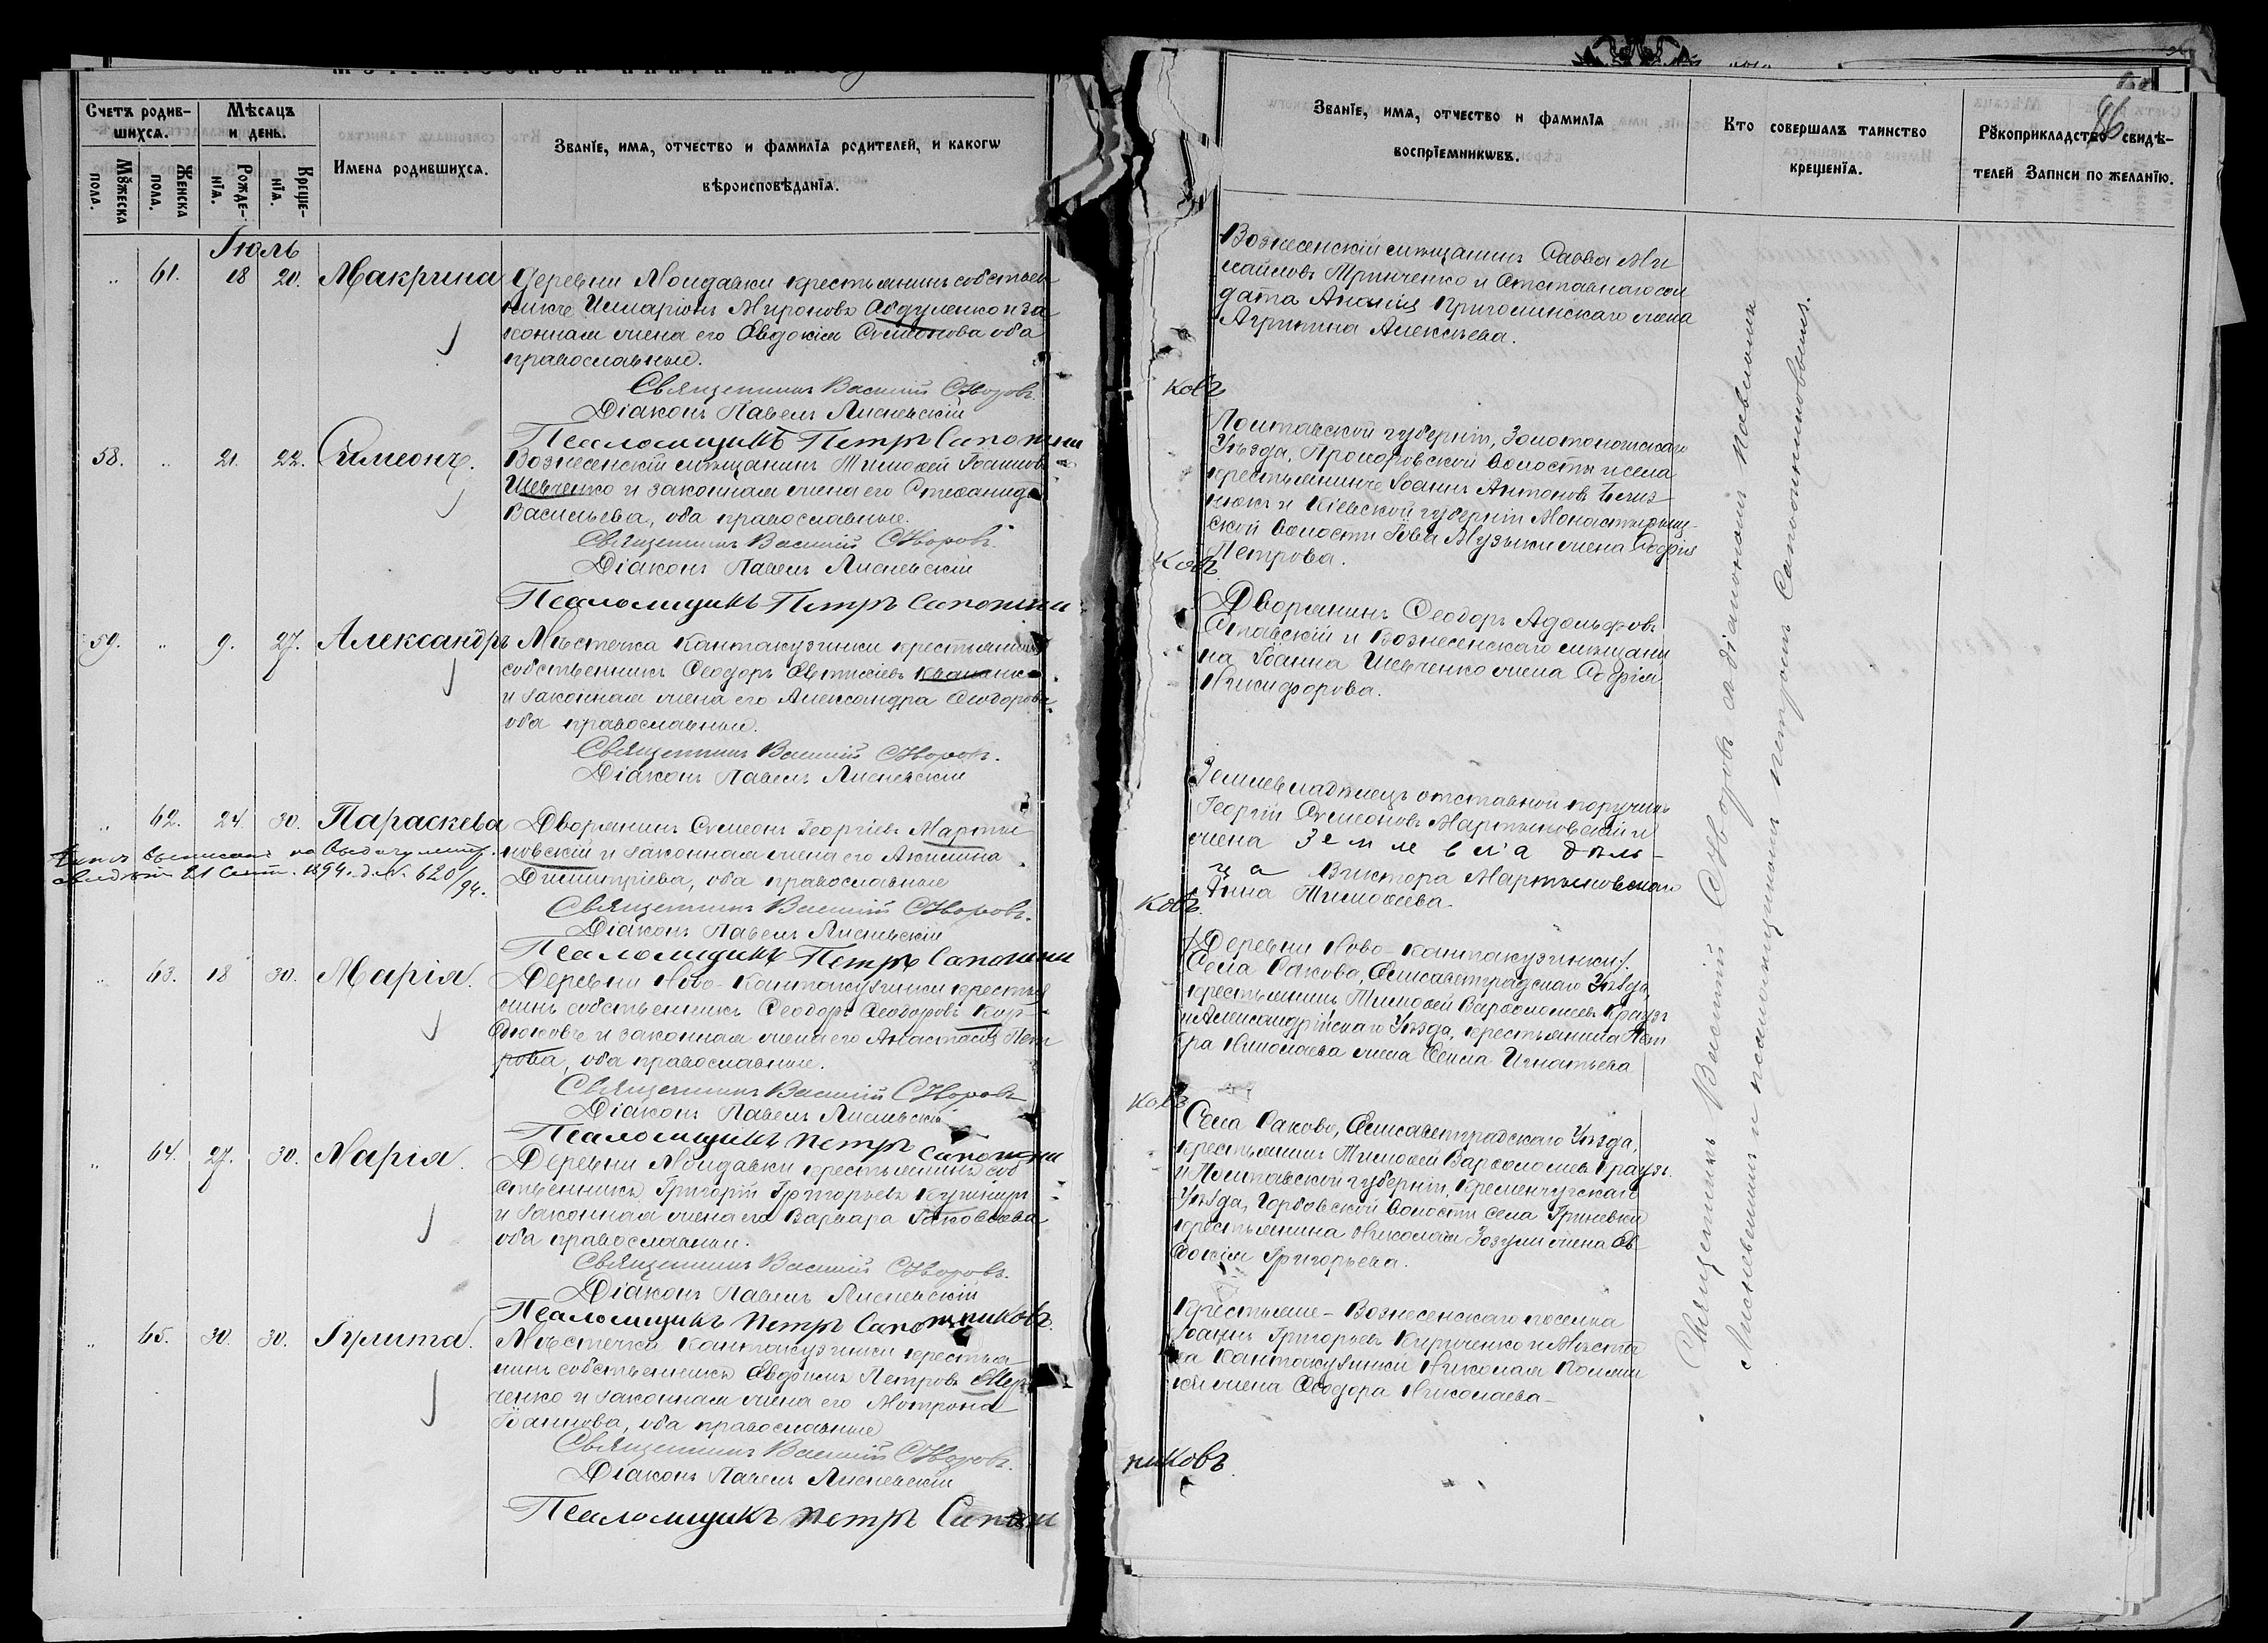 Счетъ родив-
шихсѧ.
Мѣсѧцъ
и день.
Имена родившихсѧ.
Званїе, имѧ, отчество и фамилїѧ родителей, и какогѡ
вѣроисповѣданїѧ.
Мꙋжеска
пола.
Женска
пола.
Рожде-
нїѧ.
Креще-
нїѧ.
Іюль
" 61. 18 20. Макрина Деревни Молдавки крестьянинъ собствен
никъ Илларіонъ Мироновъ Абдуленко и за
конная жена его Евдокія Симеонова оба
православные.
Священникъ Василій Скворовъ.
Діаконъ Павелъ Лисневскій
Псаломщикъ Петръ Сапожни
58. " 21. 22. Симеонъ. Вознесенскій мѣщанинъ Тимоѳей Іоанновъ
Шевченко и законная жена его Стефанида
Васильева, оба православные.
Священникъ Василій Скворовъ.
Діаконъ Павелъ Лисневскій
Псаломщикъ Петръ Сапожни
59. " 9. 27. Александръ Мѣстечка Кантакузинки крестьянинъ
собственникъ Ѳеодоръ Евтихіевъ
и законная жена его Александра Ѳеодорова
оба православные.
Священникъ Василій Скворовъ.
Діаконъ Павелъ Лисневскій
" 62. 24. 30. Параскева Дворянинъ Симеонъ Георгіевъ Марты
новскій и законная жена его Акилина
Димитріева, оба православные
21 Сент. 1894. д. № 620/94.
Священникъ Василій Скворовъ.
Діаконъ Павелъ Лисневскій
Псаломщикъ Петръ Сапожни
" 63. 18 30. Марія. Деревни Ново-Кантакузинки крестья
нинъ собственникъ Ѳеодоръ Ѳеодоровъ Кор-
дюковъ и законная жена его Анастасія Пет
рова, оба православные.
Священникъ Василій Скворовъ
Діаконъ Павелъ Лисневскій
Псаломщикъ Петръ Сапожни
" 64. 27. 30. Марія. Деревни Молдавки крестьянинъ соб
ственникъ Григорій Григорьевъ Кушниръ
и законная жена его Варвара Іаковлева
оба православные.
Священникъ Василій Скворовъ.
Діаконъ Павелъ Лисневскій
Псаломщикъ Петръ Сапожниковъ.
" 65. 30. 30. Іулита. Мѣстечка Кантакузинки крестья
нинъ собственникъ Евдокимъ Петровъ
ченко и законная жена его Матрона
Іоаннова, оба православные
Священникъ Василій Скворовъ.
Діаконъ Павелъ Лисневскій
Псаломщикъ Петръ Сапожни
86
Званїе, имѧ, отчество и фамилїѧ
воспрїемникѡвъ.
Кто совершалъ таинство
крещенїѧ.
Рꙋкоприкладство свидѣ-
телей записи по желанїю.
Вознесенскій мѣщанинъ Савва Ми
хайловъ Тринченко и Отставнаго сол
дата Ананія Григолинскаго жена
Агрипина Алексѣева.
ковъ
Полтавской губерніи, Золотоношскаго
Уѣзда, Прохоровской Волости и села
крестьянинъ Іоаннъ Антоновъ
и Кіевской губерніи Монастырищ-
ской Волости Іова Музыки жена Софія
Петрова.
ковъ.
Дворянинъ Ѳеодоръ Адольфовъ
и Вознесенскаго мѣщани
на Іоанна Шевченко жена Софія
Никифорова.
Землевладѣлецъ отставной поручикъ
Георгій Симеоновъ Мартыновскій и
жена землевладѣль-
ца Виктора Мартыновскаго
Анна Тимоѳеева.
ковъ.
/Деревни Ново-Кантакузинки/.
Села Раково, Елисаветградскаго Уѣзда,
крестьянинъ Тимоѳей Варѳоломеевъ Краузъ
и Александрійскаго Уѣзда, крестьянина Пет
ра Николаева жена Евгенія Игнатьева
ковъ
Села Раково, Елисаветградскаго Уѣзда,
крестьянинъ Тимоѳей Варѳоломеевъ Краузъ.
и Полтавской губерніи, Кременчугскаго
Уѣзда, Горбовской Волости села Гриневки
крестьянина Николая Зозули жена Ев-
докія Григорьева.
Крестьяне - Вознесенскаго поселка
Іоаннъ Григорьевъ Кириченко и Мѣстеч
ка Кантакузинки Николая
жена Ѳеодора Николаева-
никовъ.
Священникъ Василій Скворовъ съ діакономъ Павломъ
Лисневскимъ и псаломщикомъ Петромъ Сапожниковымъ.